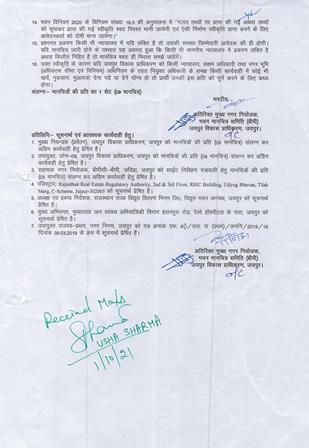 14. भवन विनियम 2020 के विनियम संख्या 16.3 की अनुपालना में "गलत तथ्यों पर प्राप्त की गई अथवा तथ्यों
को छुपाकर प्राप्त की गई स्वीकृति स्वतः निरस्त मानी जावेगी एवं ऐसी निर्माण स्वीकृति प्राप्त करने के लिए
आवेदनकर्ता को दोषी माना जावेगा।"
15. प्रश्नगत प्रकरण किसी भी न्यायालय में यदि लंबित है तो उसकी समस्त जिम्मेदारी आवेदक की ही होगी।
यदि मानचित्र जारी होने के पश्चात यह अवगत हुआ कि किसी भी माननीय न्यायालय में प्रकरण लंबित है
अथवा विपरीत निहित है तो मानचित्र स्वतः ही निरस्त समझे जावेंगे।
16. उक्त स्वीकृति के कारण यदि जयपुर विकास प्राधिकरण को किसी न्यायालय, सक्षम अधिकारी तथा नगर भूमि
के तहत नियुक्त अधिकारी के समक्ष किसी कार्यवाही में कोई भी
खर्च, नुकसान, मुआवजा देना पड़े या देने योग्य हो तो प्रार्थी उनको इस क्षति को पूर्ण करने के लिए बाध्य
होगा।
संलग्न- मानचित्रों की प्रति का 1 सेट (09 मानचित्र)
भवदीय,
अतिरिक्त मुख्य नगर नियोजक,
भवन मानचित्र समिति (बीपी)
जयपुर विकास प्राधिकरण, जयपुर।
प्रतिलिपि:- सूचनार्थ एवं आवश्यक कार्यवाही हेतु।
1. मुख्य नियन्त्रक (प्रवर्तन), जयपुर विकास प्राधिकरण, जयपुर को मानचित्रों की प्रति (09 मानचित्र) संलग्न कर
अग्रिम कार्यवाही हेतु प्रेषित है।
2. उपायुक्त, जोन-09, जयपुर विकास प्राधिकरण, जयपुर को मानचित्रों की प्रति (09 मानचित्र) संलग्न कर अग्रिम
कार्यवाही हेतु प्रेषित है।
3. सहायक नगर नियोजक, बीपीसी-बीपी, जविप्रा, जयपुर को साईट निरीक्षण पत्रावली हेतु मानचित्रों की प्रति
(09 मानचित्र) संलग्न कर अग्रिम कार्यवाही हेतु प्रेषित है।
4. रजिस्ट्रार, Rajasthan Real Estate Regulatory Authority, 2nd & 3rd Floor, RSIC Building, Udyog Bhavan, Tilak
Marg, C-Scheme, Jaipur-302005 को सूचनार्थ प्रेषित है।
5. अध्यक्ष एवं प्रबन्ध निदेशक, राजस्थान राज्य विद्युत वितरण निगम लि0, विद्युत भवन जनपथ, जयपुर को सूचनार्थ
प्रेषित है।
6. मुख्य अभियन्ता, मुख्यालय जन स्वास्थ्य अभियांत्रिकी विभाग हसनपुरा रोड, रेल्वे हॉस्पीटल के पास, जयपुर को
सूचनार्थ प्रेषित है।
7. उपायुक्त राजस्व-प्रथम, नगर निगम, जयपुर को पत्र क्रमांक एफ.
दिनांक 08.03.2019 के क्रम में सूचनार्थ प्रेषित है।
अतिरिक्त मुख्य नगर नियोजक,
भवन मानचित्र समिति (बीपी)
जयपुर विकास प्राधिकरण, जयपुर।
O/C
Received Maps
USHA SHARMA
1/10/21